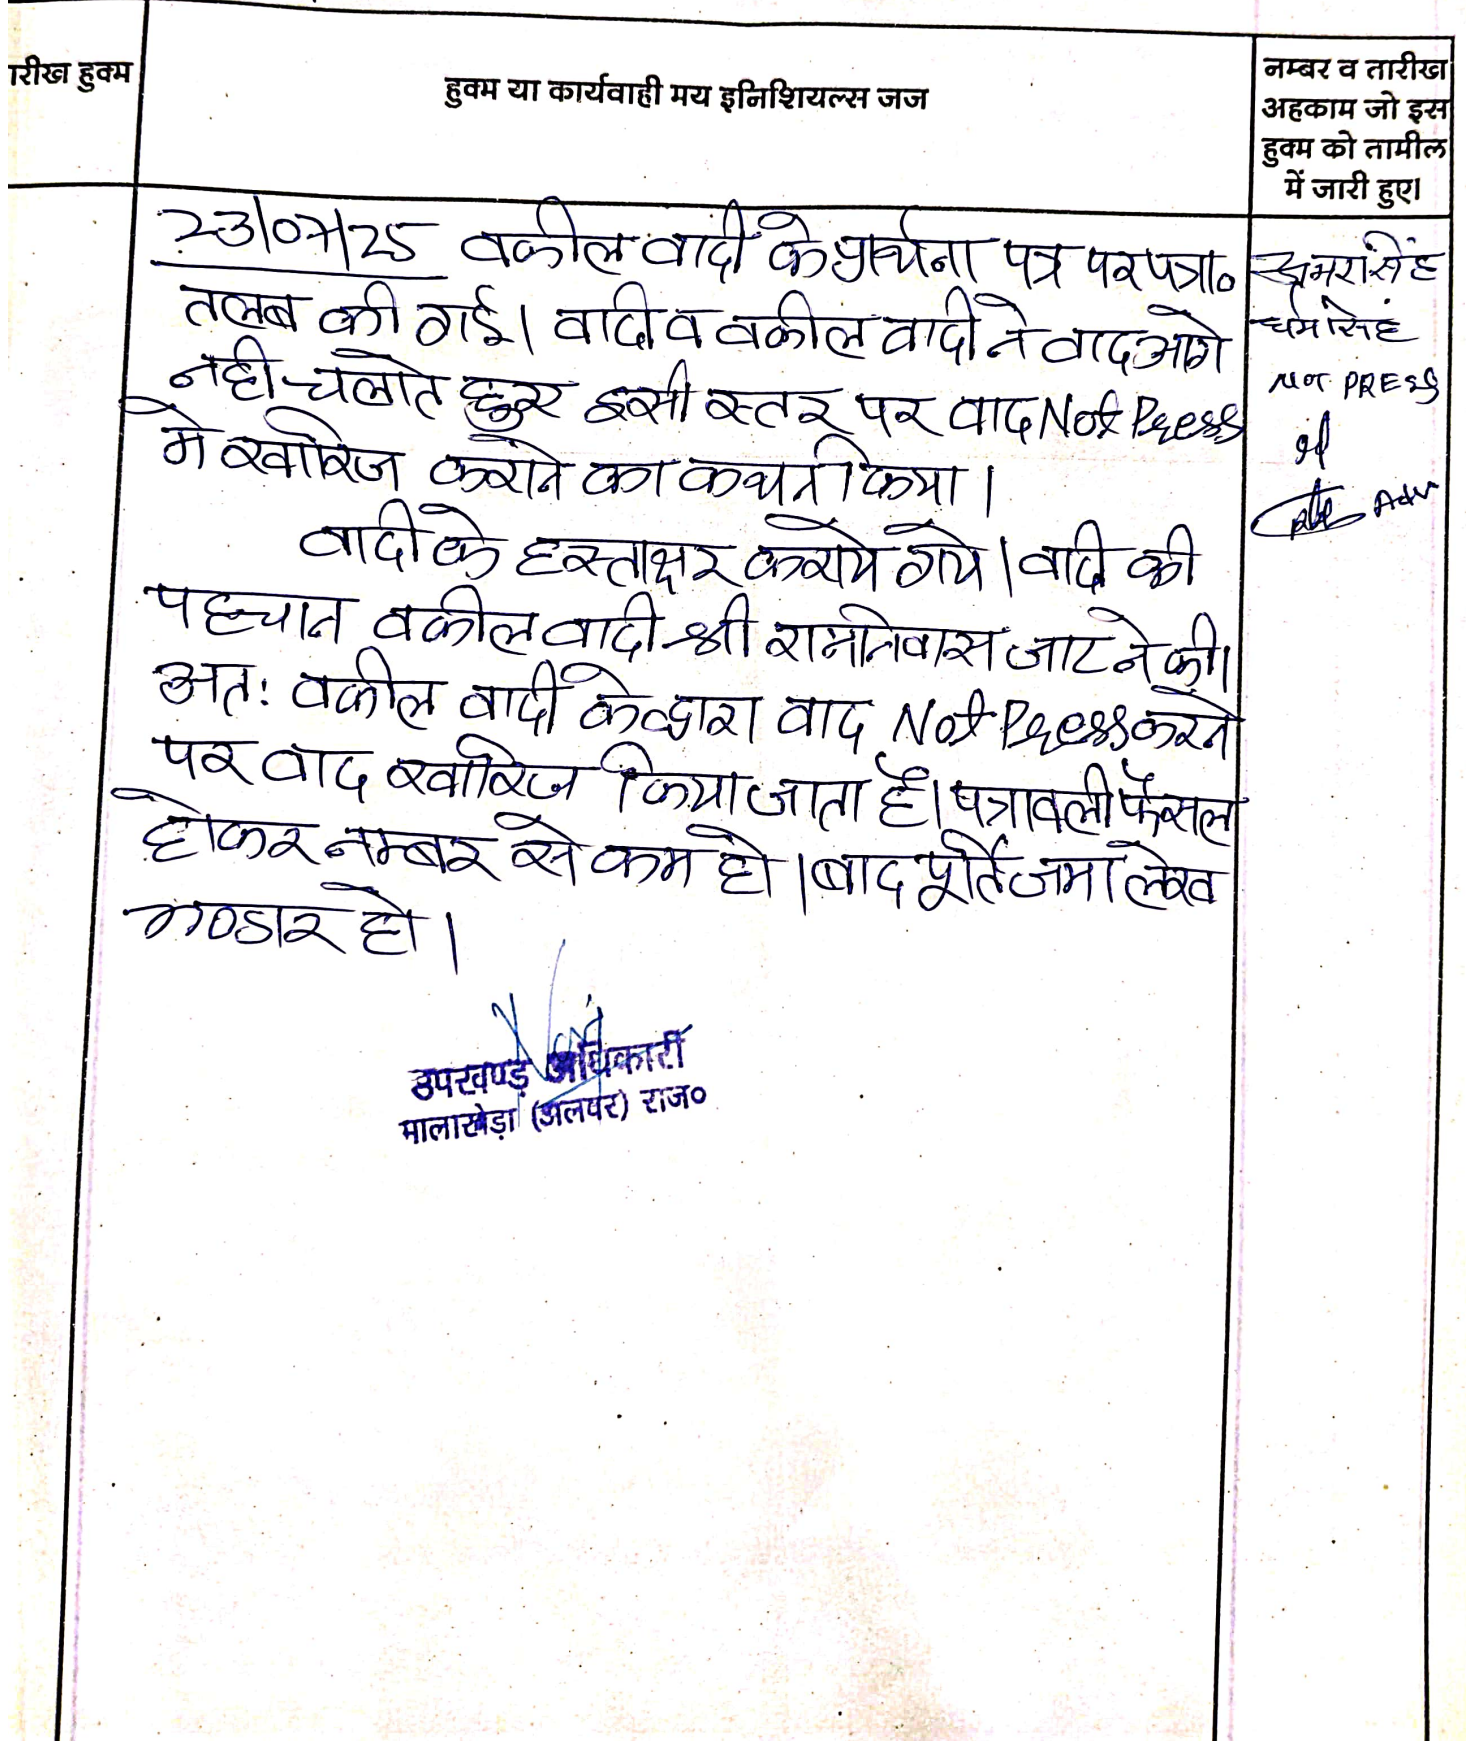 तारीख हुक्म
हुक्म या कार्यवाही मय इनिशियल्स जज
नम्बर व तारीख
अहकाम जो इस
हुक्म को तामील
में जारी हुए।
23/07/25 वकील वादी के प्रार्थना पत्र पर पत्रा०
तलब की गई। वादी व वकील वादी ने वाद आगे
नही चलाते हुए इसी स्तर पर वाद Not Press
मे खारिज कराने का कथन किया।
वादी के हस्ताक्षर कराये गये। वादी की
पहचान वकील वादी श्री रामनिवास जाट ने की।
अत: वकील वादी के द्वारा वाद Not Press करने
पर वाद खारिज किया जाता है। पत्रावली फैसल
होकर नम्बर से कम हो। बाद पूर्ति जमा लेख
भण्डार हो।
अमरसिंह
धर्मसिंह
NOT PRESS
Adv
उपखण्ड अधिकारी
मालाखेड़ा (अलवर) राज०